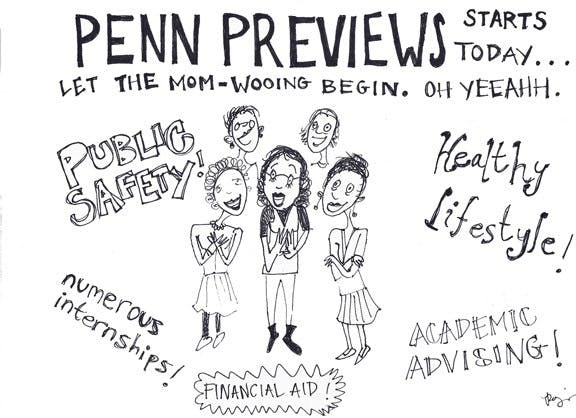 PENN PREVIEWS STARTS TODAY...
LET THE MOM-WOOING BEGIN. OH YEEAHH.
PUBLIC
SAFETY!
Healthy
Lifestyle!
numerous
internships!
ACADEMIC
ADVISING!
FINANCIAL AID!